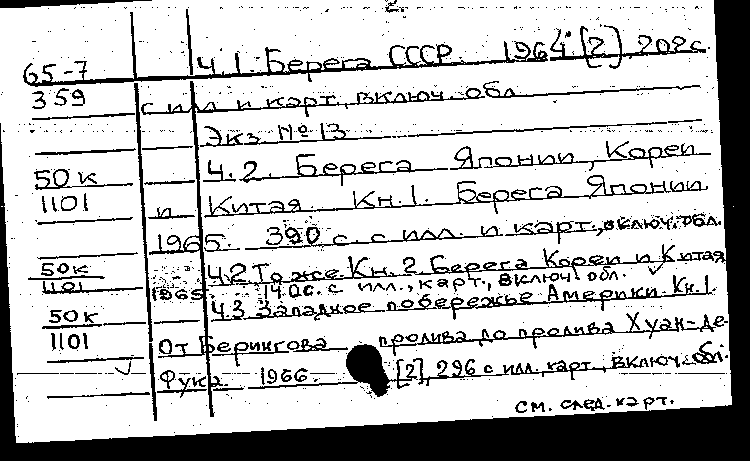 2.
65-7 Ч.1. Берега СССР. 1964. [2], 202 с
359 с илл и карт., включ. обл
Экз. № 13
50к Ч.2. Берега Японии, Кореи
1101 и Китая. Кн.1. Берега Японии
1965. 390 с. с илл. и карт., включ. обл.
50к Ч.2 То же. Кн. 2. Берега Кореи и Китая
1101 1965. 140 с. с илл., карт., включ. обл.
50к Ч.3 Западное побережье Америки. Кн.1.
1101 От Берингова пролива до пролива Хуан-де-
Фука. 1966. [2], 296 с илл., карт., включ. обл.
см. след. карт.